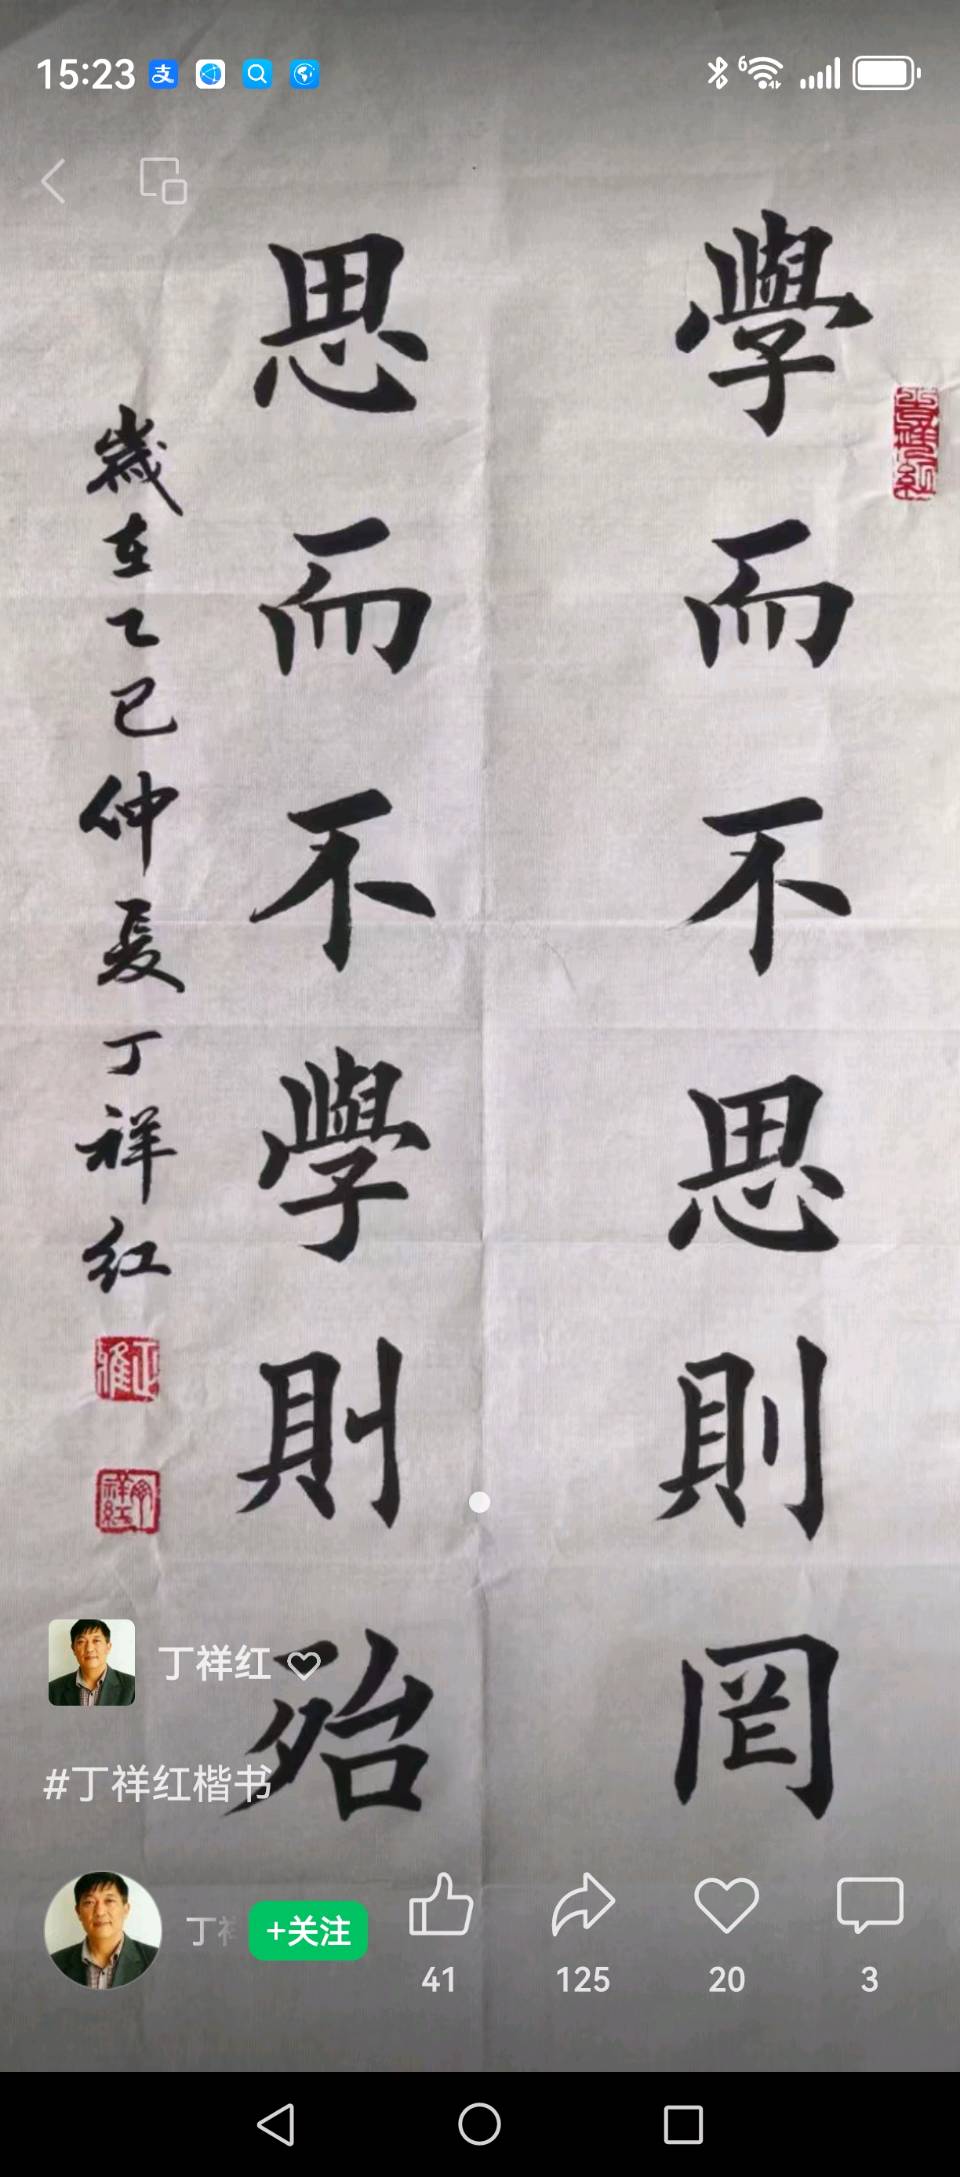 15:23
學而不思則罔
思而不學則殆
歲在乙巳仲夏丁祥红
丁祥红
#丁祥红楷书
丁祥
+关注
41
125
20
3